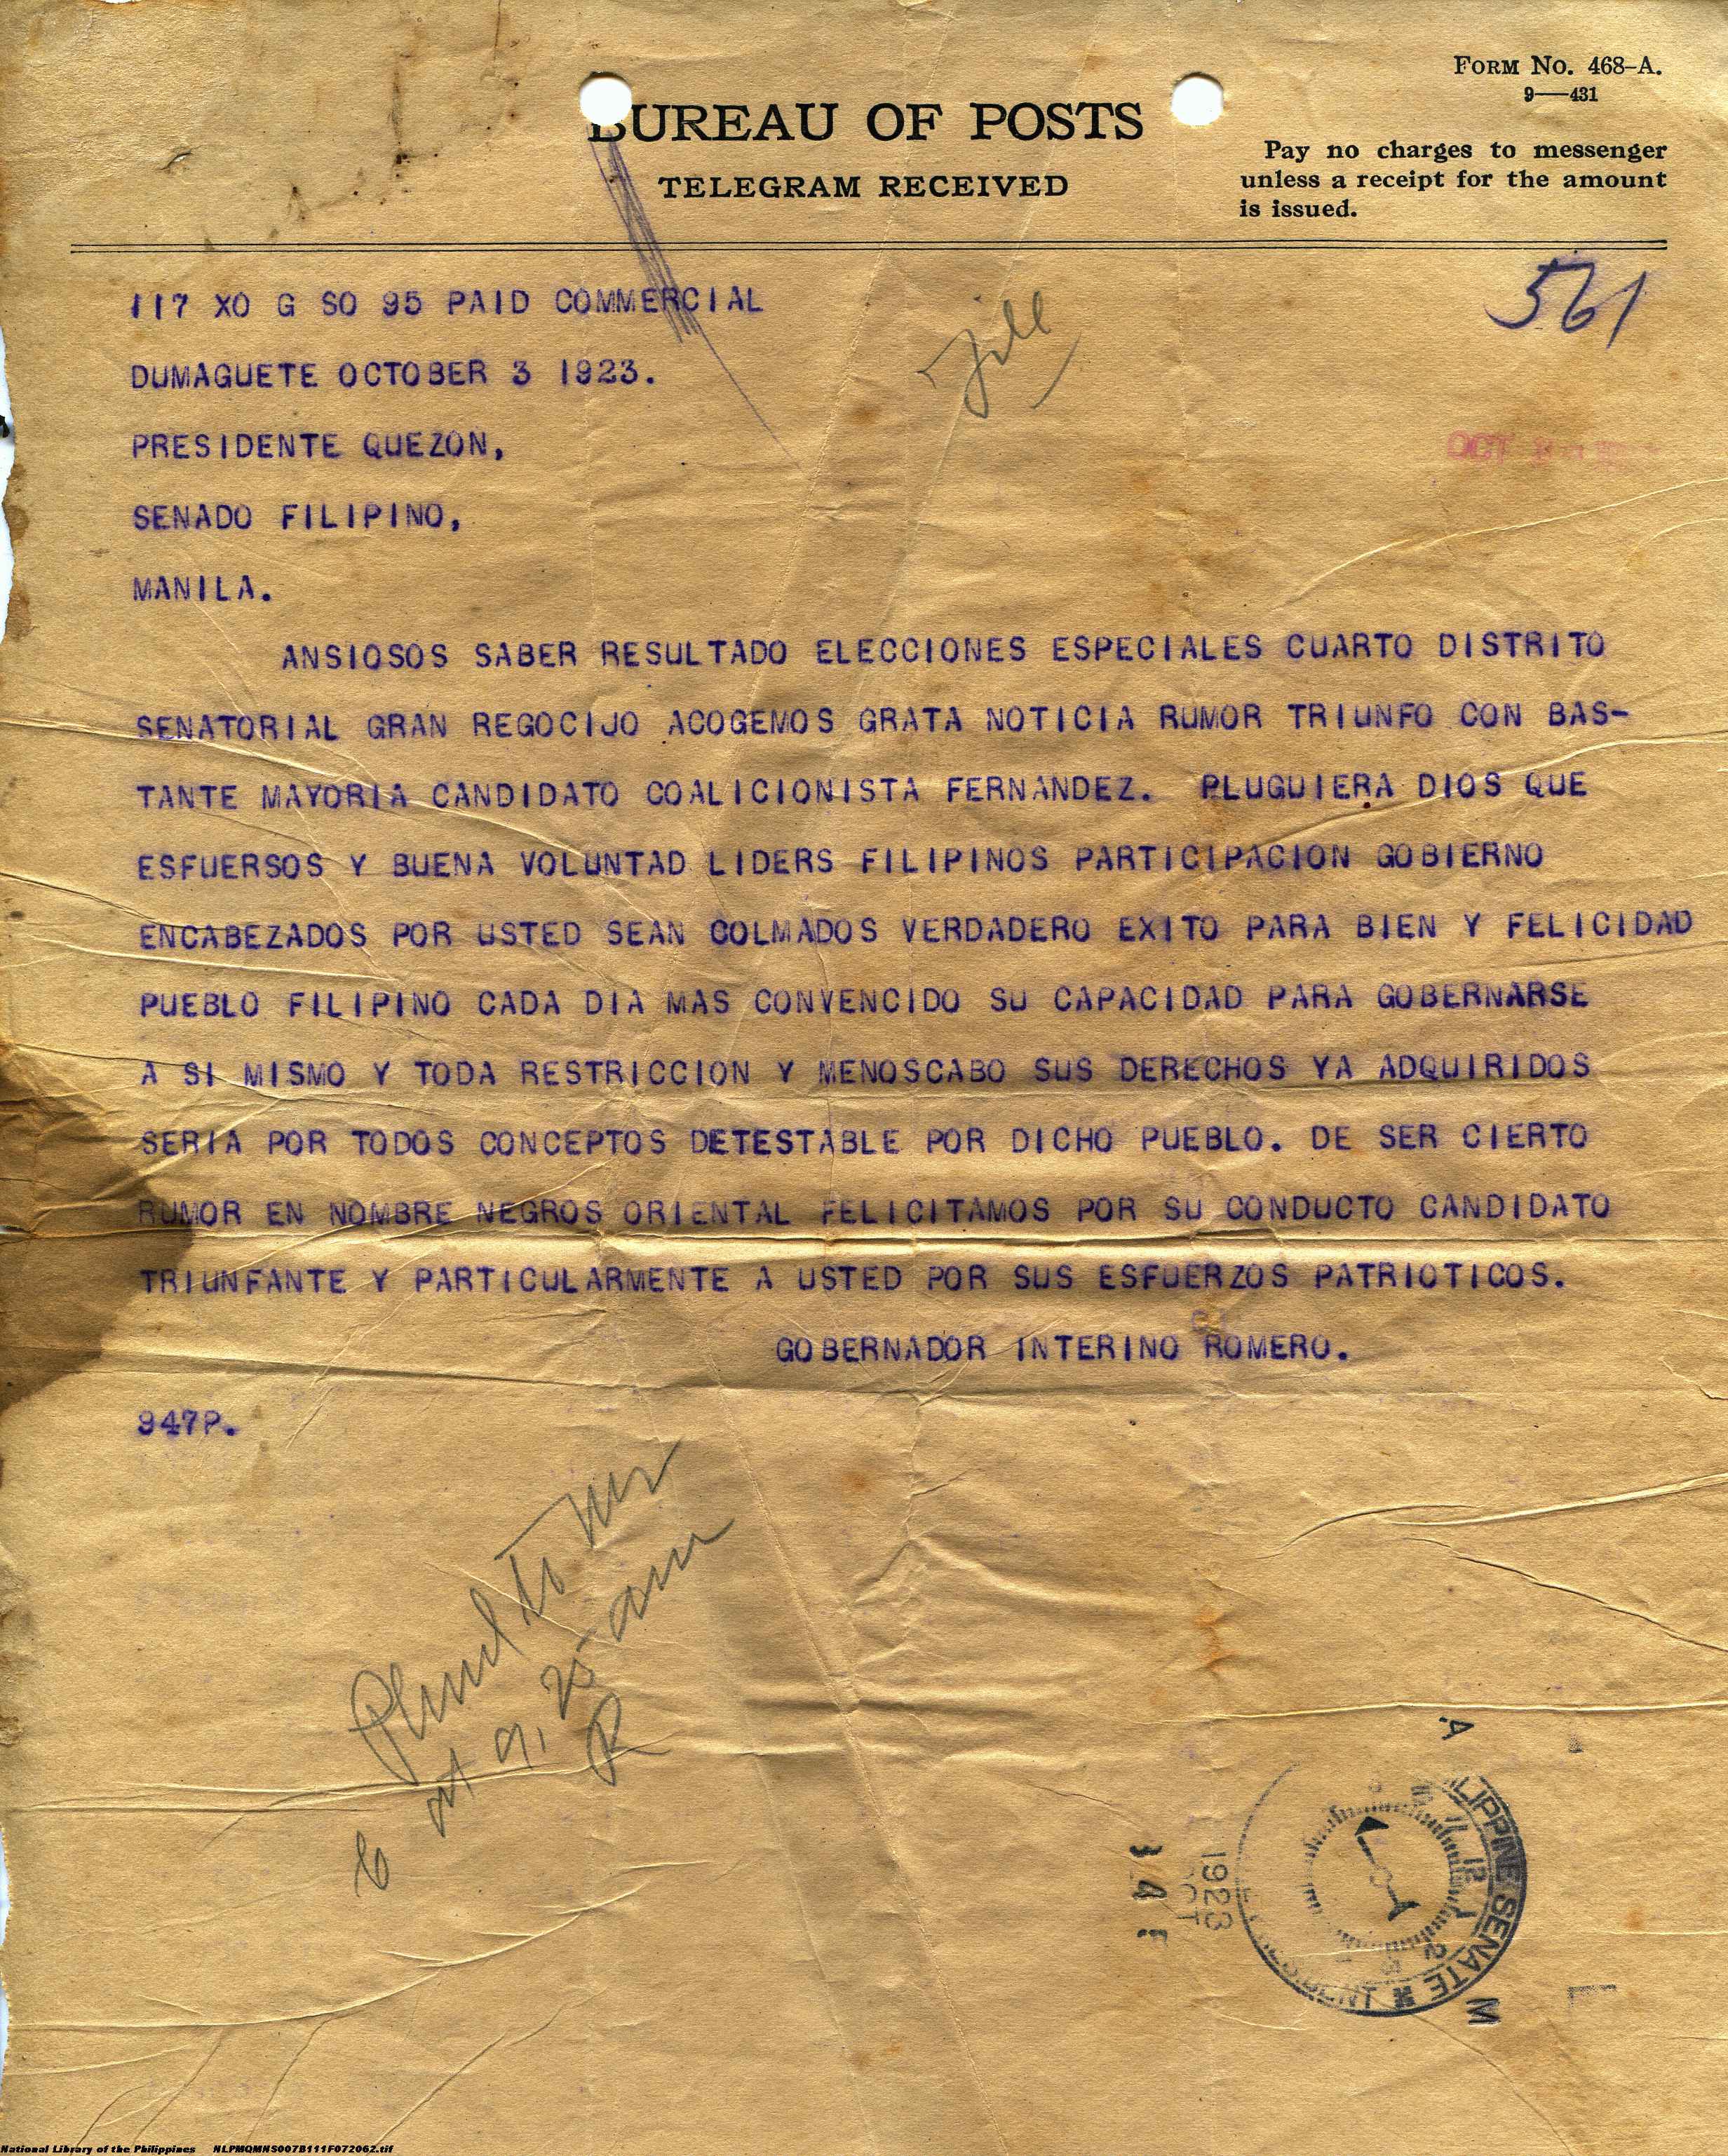 FORM NO. 468-A.
9—431
BUREAU OF POSTS
TELEGRAM RECEIVED
Pay no charges to messenger
unless a receipt for the amount
is issued.
561
117 XO G SO 95 PAID COMMERCIAL
DUMAGUETE OCTOBER 3 1923.
PRESIDENTE QUEZON,
OCT
SENADO FILIPINO,
MANILA.
ANSIOSOS SABER RESULTADO ELECCIONES ESPECIALES CUARTO DISTRITO
SENATORIAL GRAN REGOCIJO ACOGEMOS GRATA NOTICIA RUMOR TRIUNFO CON BAS-
TANTE MAYORIA CANDIDATO COALICIONISTA FERNANDEZ. PLUGUIERA DIOS QUE
ESFUERSOS Y BUENA VOLUNTAD LIDERS FILIPINOS PARTICIPACION GOBIERNO
ENCABEZADOS POR USTED SEAN COLMADOS VERDADERO EXITO PARA BIEN Y FELICIDAD
PUEBLO FILIPINO CADA DIA MAS CONVENCIDO SU CAPACIDAD PARA GOBERNARSE
A SI MISMO Y TODA RESTRICCION Y MENOSCABO SUS DERECHOS YA ADQUIRIDOS
SERIA POR TODOS CONCEPTOS DETESTABLE POR DICHO PUEBLO. DE SER CIERTO
RUMOR EN NOMBRE NEGROS ORIENTAL FELICITAMOS POR SU CONDUCTO CANDIDATO
TRIUNFANTE Y PARTICULARMENTE A USTED POR SUS ESFUERZOS PATRIOTICOS.
GOBERNADOR INTERINO ROMERO.
947P.
to
at 9,25 am
R
A M
PHILIPPINE SENATE
PRESIDENT
1923
OCT
National Library of the Philippines NLPMQMNS007B111F072062.tif